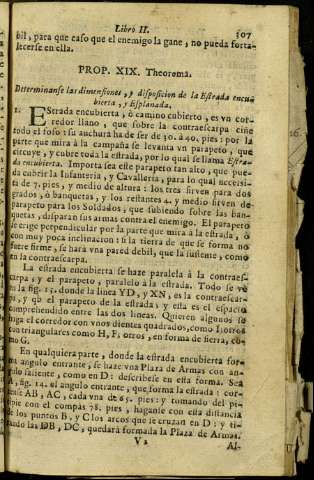 Libro II. 307
bil, para que caso que el enemigo la gane, no pueda forta-
lecerse en ella.
PROP. XIX. Theorema.
Determinanse las dimensiones, y disposicion de la Estrada encu-
bierta, y Esplanada.
1. EStrada encubierta, ò camino cubierto, es vn cor-
redor llano, que sobre la contraescarpa ciñe
todo el foso: su anchura ha de ser de 30. à 40. pies: por la
parte que mira à la campaña se levanta vn parapeto, que
circuye, y cubre toda la estrada, por lo qual se llama Estra-
da encubierta. Importa sea este parapeto tan alto, que pue-
da cubrir la Infanteria, y Cavalleria, para lo qual necessi-
ta de 7. pies, y medio de altura: los tres sirven para dos
grados, ò banquetas, y los restantes 4. y medio sirven de
parapeto para los Soldados, que subiendo sobre las ban-
quetas, disparan sus armas contra el enemigo. El parapeto
se erige perpendicular por la parte que mira à la estrada, ò
con muy poca inclinacion: si la tierra de que se forma no
fuere firme, se harà vna pared debil, que la sustente, como
en la contraescarpa.
La estrada encubierta se haze paralela à la contraes-
carpa; y el parapeto, paralelo à la estrada. Todo se vè
en la fig. 13. donde la linea YD, y XN, es la contraescar-
pa, y qb el parapeto de la estrada; y esta es el espacio
comprehendido entre las dos lineas. Quieren algunos se
haga el corredor con vnos dientes quadrados, como I, otros
con triangulares como H, F, otros, en forma de sierra, co-
mo G.
En qualquiera parte, donde la estrada encubierta for-
ma angulo entrante, se haze vna Plaza de Armas con an-
gulo saliente, como en D: describese en esta forma. Sea
A, fig. 14. el angulo entrante, que forma la estrada: cor-
tense AB, AC, cada vna de 65. pies: y tomando del pi-
tipie con el compàs 78. pies, haganse con esta distancia
de los puntos B, y C los arcos que se cruzan en D: y ti-
rando las DB, DC, quedarà formada la Plaza de Armas.
V 2 Al-